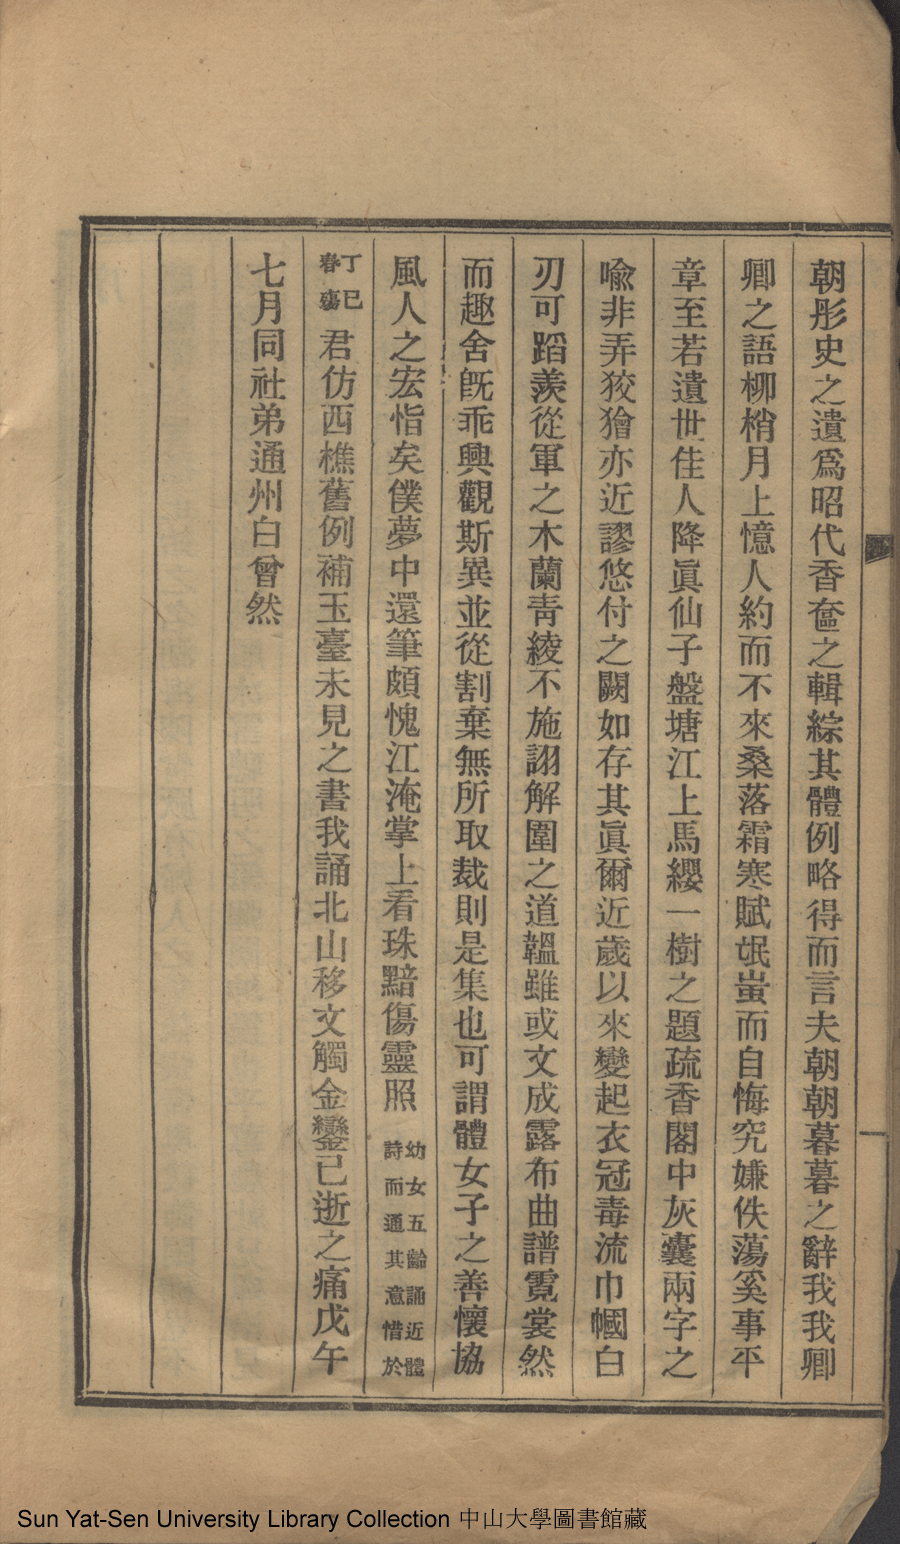 朝彤史之遺爲昭代香奩之輯綜其體例略得而言夫朝朝暮暮之辭我我卿
卿之語柳梢月上憶人約而不來桑落霜寒賦氓蚩而自悔究嫌佚蕩奚事平
章至若遺世佳人降眞仙子盤塘江上馬纓一樹之題疏香閣中灰囊兩字之
喩非弄狡獪亦近謬悠付之闕如存其眞爾近歲以來變起衣冠毒流巾幗白
刃可蹈羨從軍之木蘭靑綾不施詡解圍之道韞雖或文成露布曲譜霓裳然
而趣舍旣乖興觀斯異並從割棄無所取裁則是集也可謂體女子之善懷協
風人之宏恉矣僕夢中還筆頗愧江淹掌上看珠黯傷靈照幼女五齡誦近體詩而通其意惜於
丁巳春殤君仿西樵舊例補玉臺未見之書我誦北山移文觸金鑾已逝之痛戊午
七月同社弟通州白曾然
Sun Yat-Sen University Library Collection 中山大學圖書館藏